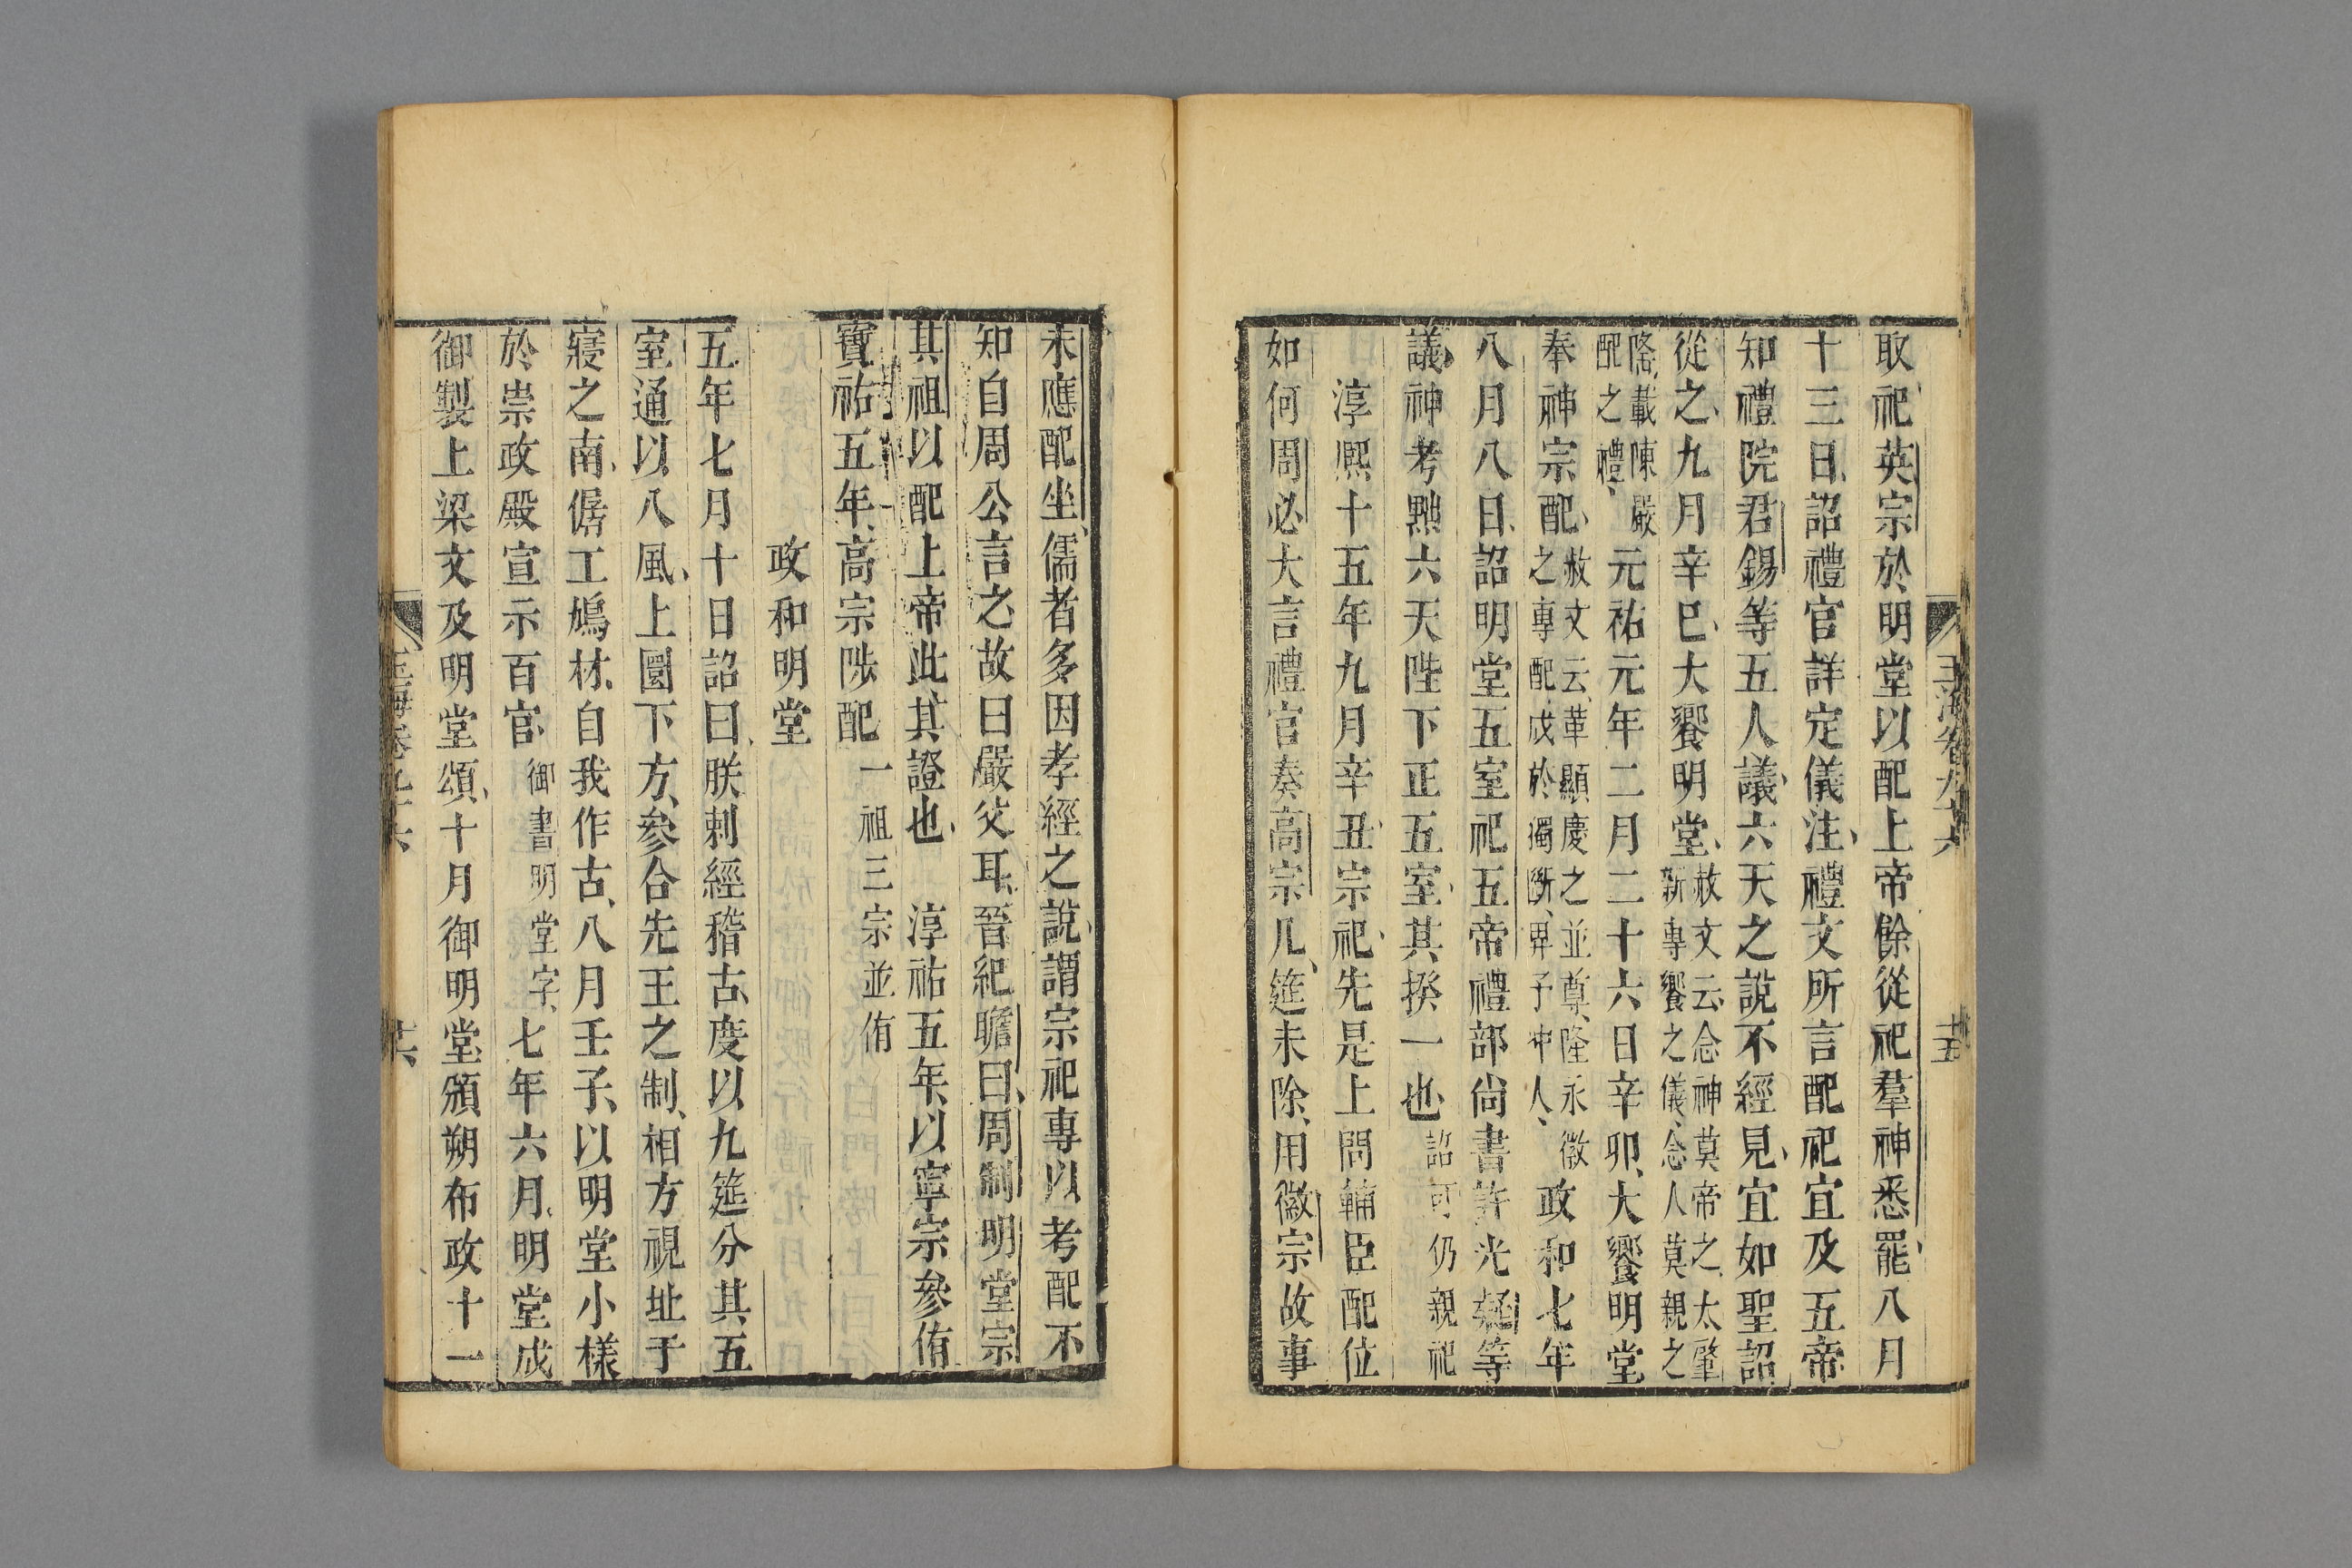 玉海卷九十六
廿五
取祀英宗於明堂以配上帝餘從祀羣神悉罷八月
十三日詔禮官詳定儀注禮文所言配祀宜及五帝
知禮院君錫等五人議六天之說不經見宜如聖詔
從之九月辛巳大饗明堂赦文云念神莫帝之太肇新專饗之儀念人莫親之
隆載陳嚴配之禮元祐元年二月二十六日辛卯大饗明堂
奉神宗配赦文云革顯慶之並尊隆永徽之專配成於獨斷畀予冲人政和七年
八月八日詔明堂五室祀五帝禮部尚書許光凝等
議神考黜六天陛下正五室其揆一也詔可仍親祀
淳熈十五年九月辛丑宗祀先是上問輔臣配位
如何周必大言禮官奏高宗几筵未除用徽宗故事
未應配坐儒者多因孝經之說謂宗祀專以考配不
知自周公言之故曰嚴父耳晉紀瞻曰周制明堂宗
其祖以配上帝此其證也 淳祐五年以寧宗參侑
寶祐五年高宗陟配一祖三宗並侑
政和明堂
五年七月十日詔曰朕刺經稽古度以九筵分其五
室通以八風上圜下方參合先王之制相方視址于
寢之南僝工鳩材自我作古八月壬子以明堂小樣
於崇政殿宣示百官御書明堂字七年六月明堂成
御製上梁文及明堂頌十月御明堂頒朔布政十一
玉海卷九十六
廿六